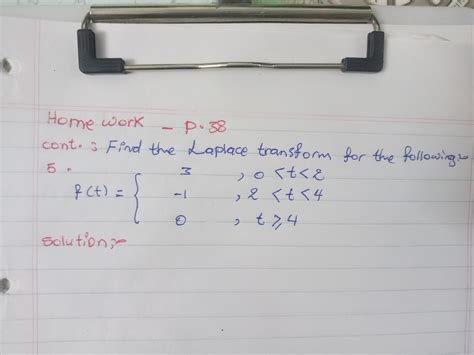 Home work - P.38
cont. : Find the Laplace transform for the following:-
5.
f(t) = { 3 , 0 < t < 2
-1 , 2 < t < 4
0 , t ⩾ 4
solution:-